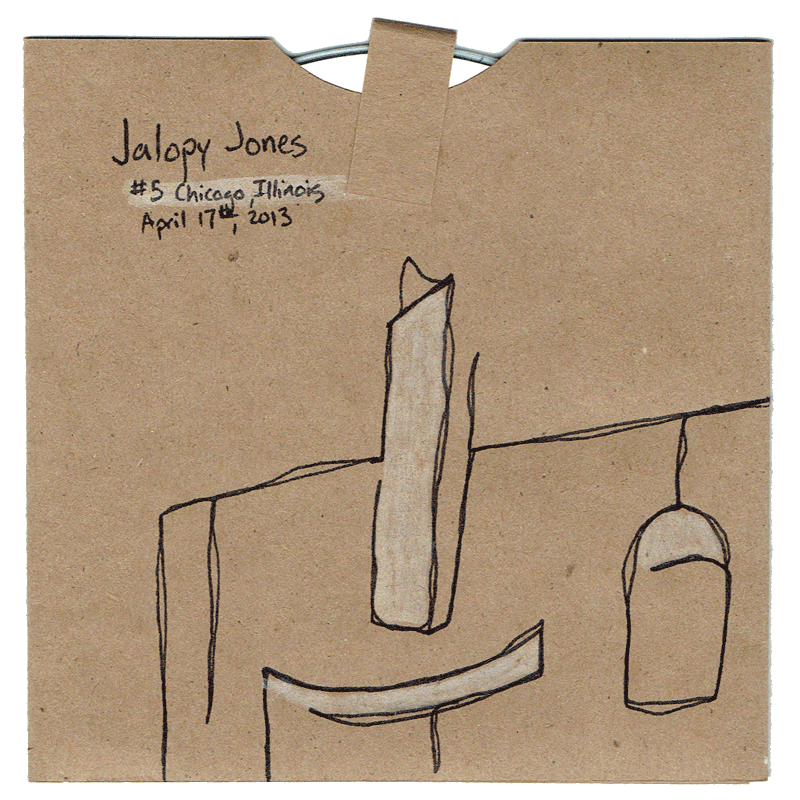 Jalopy Jones
#5 Chicago, Illinois
April 17th, 2013